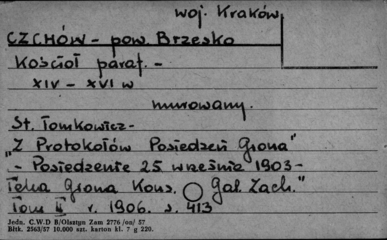 woj. Kraków
CZCHÓW - pow. Brzesko
Kościół paraf. -
XIV - XVI w
murowany.
St. Tomkowicz -
"Z Protokołów Posiedzeń Grona"
- Posiedzenie 25 września 1903 -
Teka Grona Kons. Gal Zach."
Tom II r. 1906. s. 413
Jedn. C.W.D B/Olsztyn Zam 2776 /on/ 57
Bltk. 2563/57 10.000 szt. karton kl. 7 g 220.